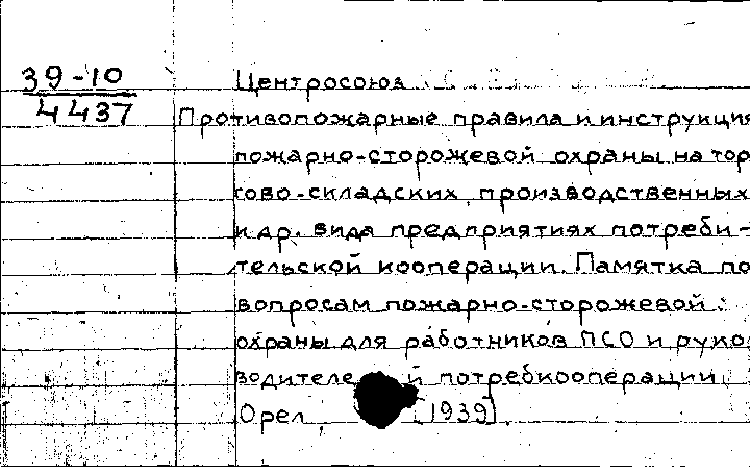 39-10
4437
Центросоюз
Противопожарные правила и инструкция
пожарно-сторожевой охраны на тор
гово-складских, производственных
и др. вида предприятиях потреби-
тельской кооперации. Памятка по
вопросам пожарно-сторожевой
охраны для работников ПСО и руко
водителей потребкооперации.
Орел [1939].